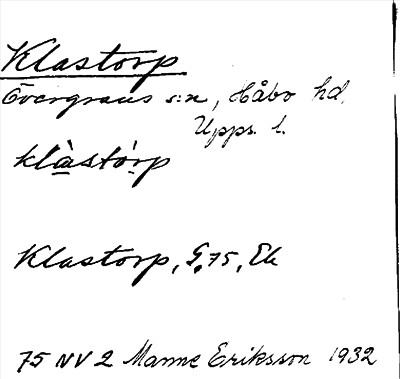 Klastorp
Övergrans s:n, Håbo hd,
Upps. l.
klàstórp
Klastorp, G, 75, Ek
75 NV 2 Manne Eriksson 1932